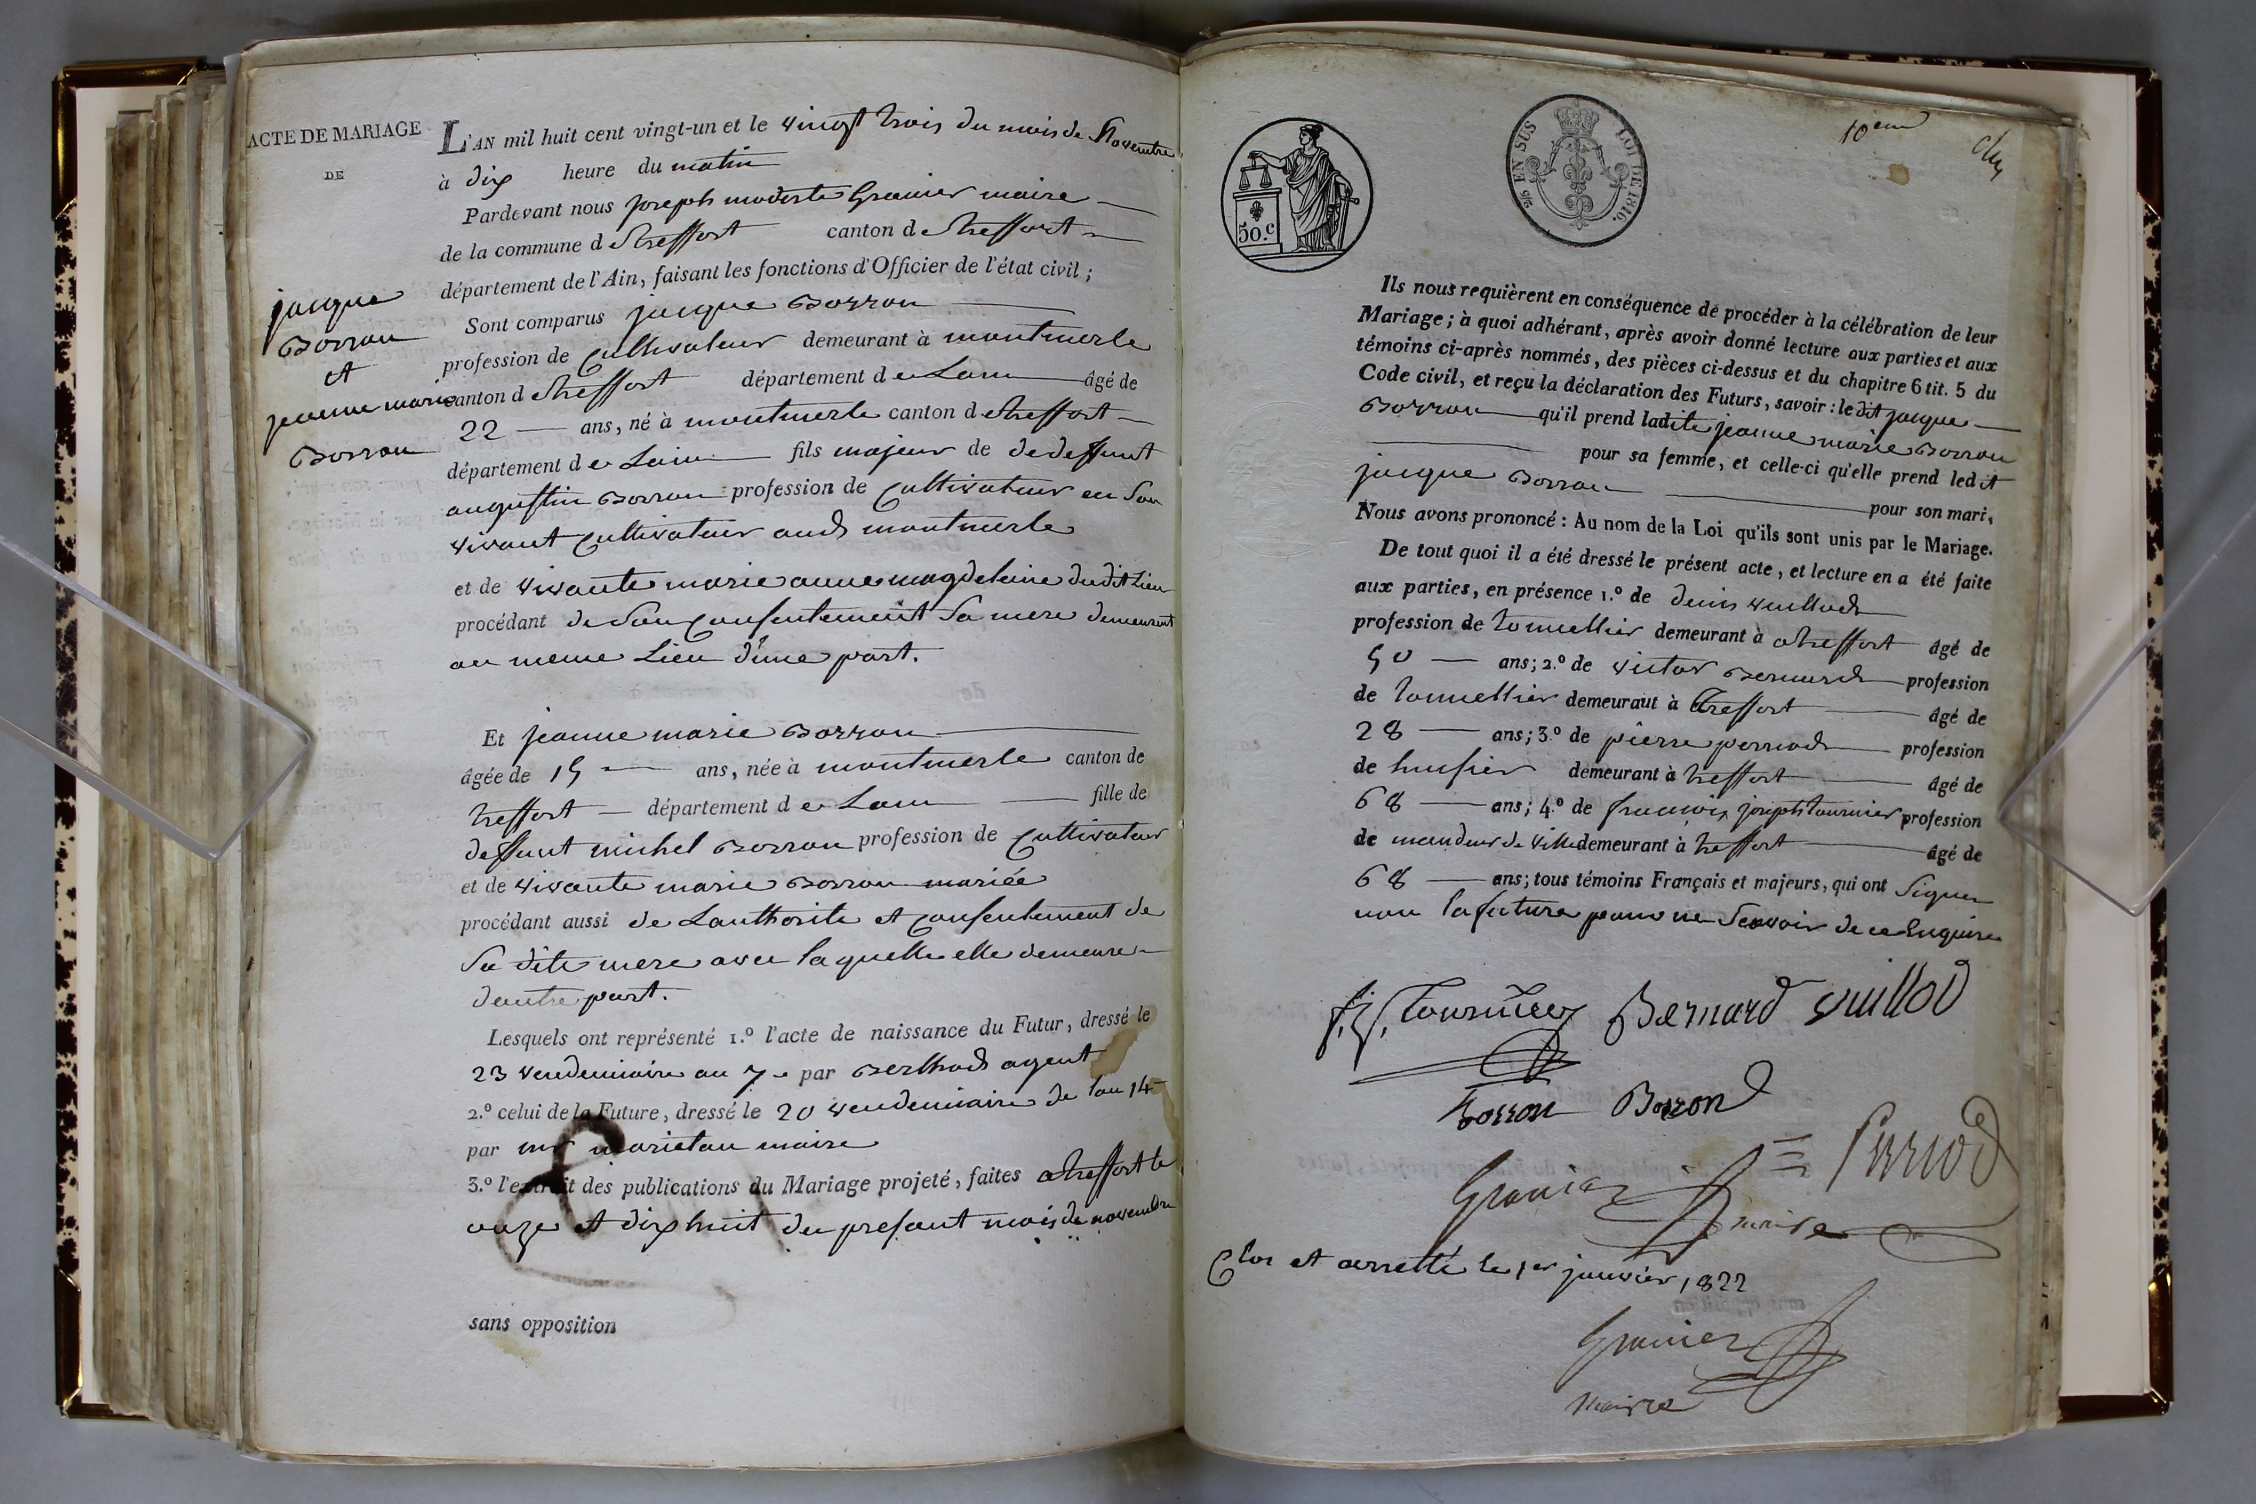 ACTE DE MARIAGE
DE
jacque
Borron
et
jeanne marie
Borron
L'AN mil huit cent vingt-un et le vingt trois du mois de Novembre
à dix heure du matin
Pardevant nous joseph modeste Granier maire
de la commune d etreffort canton d etreffort
département de l'Ain, faisant les fonctions d'Officier de l'état civil ;
Sont comparus jacque Borron
profession de Cultivateur demeurant à montmerle
canton d etreffort département d e Lain âgé de
22 ans, né à montmerle canton d etreffort
département d e Lain fils majeur de de deffunt
augustin Borron profession de Cultivateur en Son
vivant Cultivateur aud montmerle
et de vivante marie anne magdelaine dudit Lieu
procédant de Son Consentement Sa mere demeurent
au meme Lieu d'une part.
Et jeanne marie Borron
âgée de 15 ans, née à montmerle canton de
treffort département d e Lain fille de
deffunt michel Borron profession de Cultivateur
et de vivante marie Borron mariée
procédant aussi de Lauthorite et Consentement de
Sa dite mere avec laquelle elle demeure
dautre part.
Lesquels ont représenté 1.º l'acte de naissance du Futur, dressé le
23 vendemiaire an 7e par Berthod agent
2.º celui de la Future, dressé le 20 vendemiaire de lan 14
par mr marietan maire
3.º l'extrait des publications du Mariage projeté, faites atreffort le
onze et dix huit du presant mois de novembre
sans opposition
50.c
2/6 EN SUS
LOI DE 1816.
10eme
Ils nous requièrent en conséquence de procéder à la célébration de leur
Mariage ; à quoi adhérant, après avoir donné lecture aux parties et aux
témoins ci-après nommés, des pièces ci-dessus et du chapitre 6 tit. 5 du
Code civil, et reçu la déclaration des Futurs, savoir : le dit jacque
Borron qu'il prend ladite jeanne marie Borron
pour sa femme, et celle-ci qu'elle prend led it
jacque Borron pour son mari,
Nous avons prononcé : Au nom de la Loi qu'ils sont unis par le Mariage.
De tout quoi il a été dressé le présent acte, et lecture en a été faite
aux parties, en présence 1.º de denis vuillod
profession de tonnellier demeurant à atreffort âgé de
50 ans ; 2.º de victor Bernard profession
de tonnellier demeurant à treffort âgé de
28 ans ; 3.º de pierre perriod profession
de huisier demeurant à treffort âgé de
68 ans ; 4.º de francois joseph tournier profession
de mandeur de ville demeurant à treffort âgé de
68 ans ; tous témoins Français et majeurs, qui ont Signer
non la future pour ne Scavoir de ce Enquise
f. j. tournier Bernard vuillod
Borron Borron
Perriod
Granier maire
Clos et arretté le 1er janvier 1822
Granier
maire